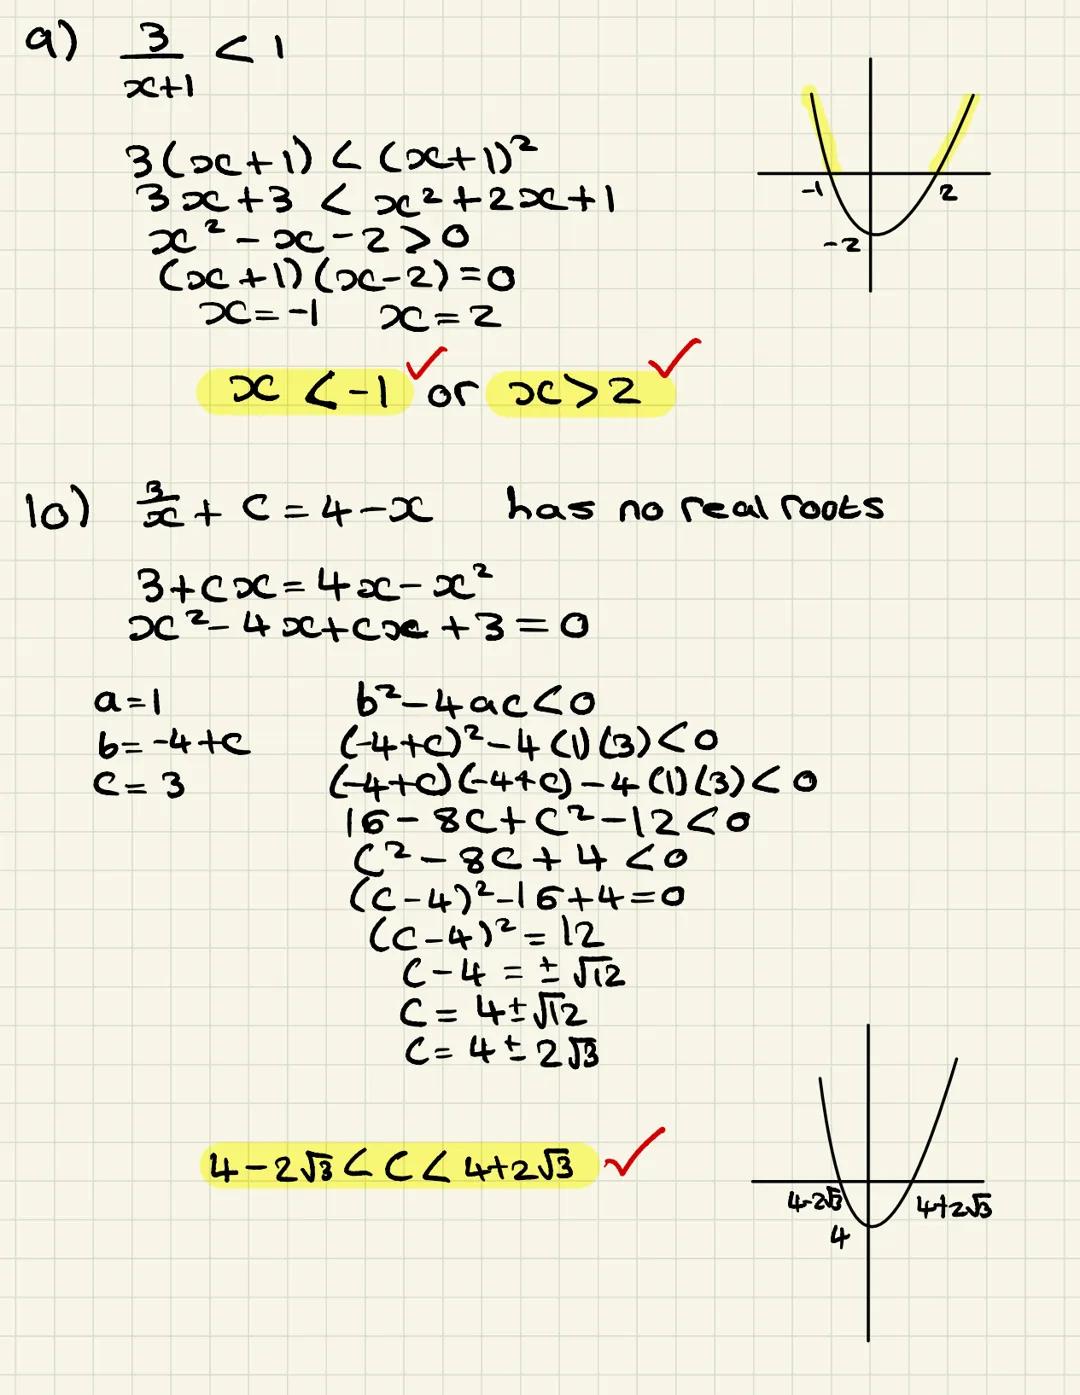 9) 3/x+1 < 1
3(x+1) < (x+1)²
3x+3 < x²+2x+1
x²-x-2>0
(x+1)(x-2)=0
x=-1 x=2
x <-1 or x>2
-1 2
-2
10) 3/x + C = 4-x has no real roots
3+cx=4x-x²
x²-4x+cx+3=0
a=1
b=-4+c
c=3
b²-4ac<0
(-4+c)²-4(1)(3)<0
(-4+c)(-4+c)-4(1)(3)<0
16-8c+c²-12<0
c²-8c+4<0
(c-4)²-16+4=0
(c-4)²=12
c-4=±√12
c=4±√12
c=4±2√3
4-2√3<c<4+2√3
4-2√3 4+2√3
4